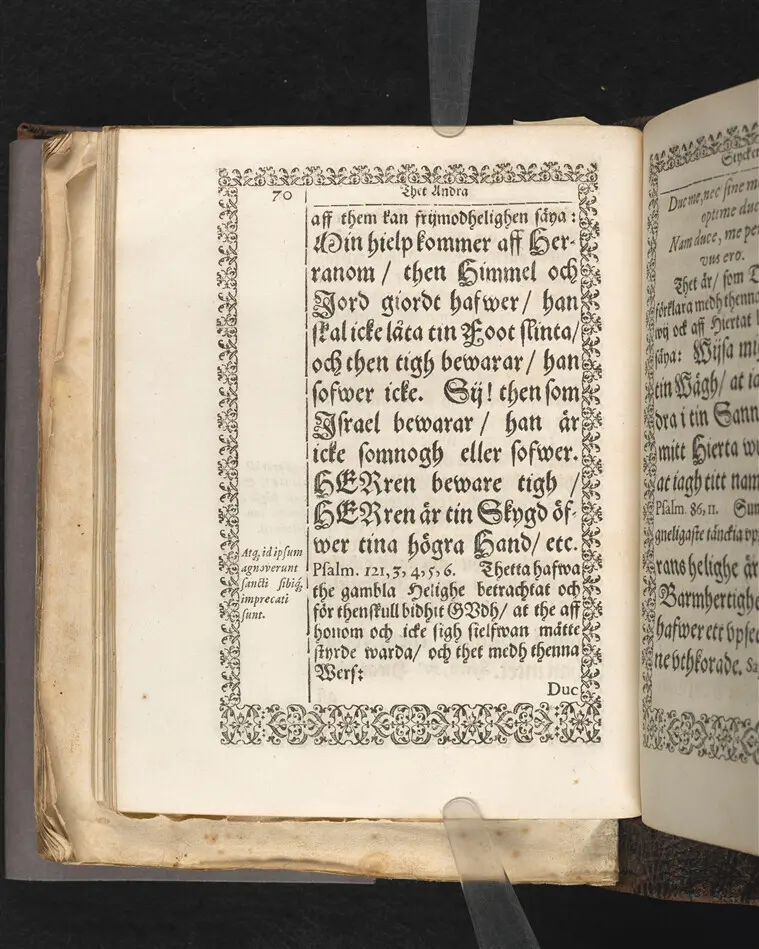 70
Thet Andra
aff them kan frijmodhelighen säya:
Min hielp kommer aff Her-
ranom / then Himmel och
Jord giordt hafwer / han
skal icke låta tin Foot slinta/
och then tigh bewarar / han
sofwer icke. Sij! then som
Israel bewarar / han är
icke somnogh eller sofwer.
HERren beware tigh /
HERren är tin Skygd öf-
wer tina högra Hand/ etc.
Psalm. 121, 3, 4, 5, 6. Thetta hafwa
the gambla Helighe betrachtat och
för thenskull bidhit GVdh/ at the aff
honom och icke sigh sielfwan måtte
styrde warda/ och thet medh thenna
Werß:
Duc
Atq, id ipsum
agnoverunt
sancti sibiq,
imprecati
sunt.
Stycket
Duc me, nec sine m
optime duc
Nam duce, me pe
vus ero.
Thet är/ som D
förklara medh thenna
wij ock aff Hiertat
säya: Wijsa mi
tin Wägh/ at ia
dra i tin Sann
mitt Hierta w
at iagh titt nam
Psalm. 86, 11. Sum
gneligaste tänckia vp
rans helighe är
Barmhertighe
hafwer ett vpsee
ne vthkorade. Sa